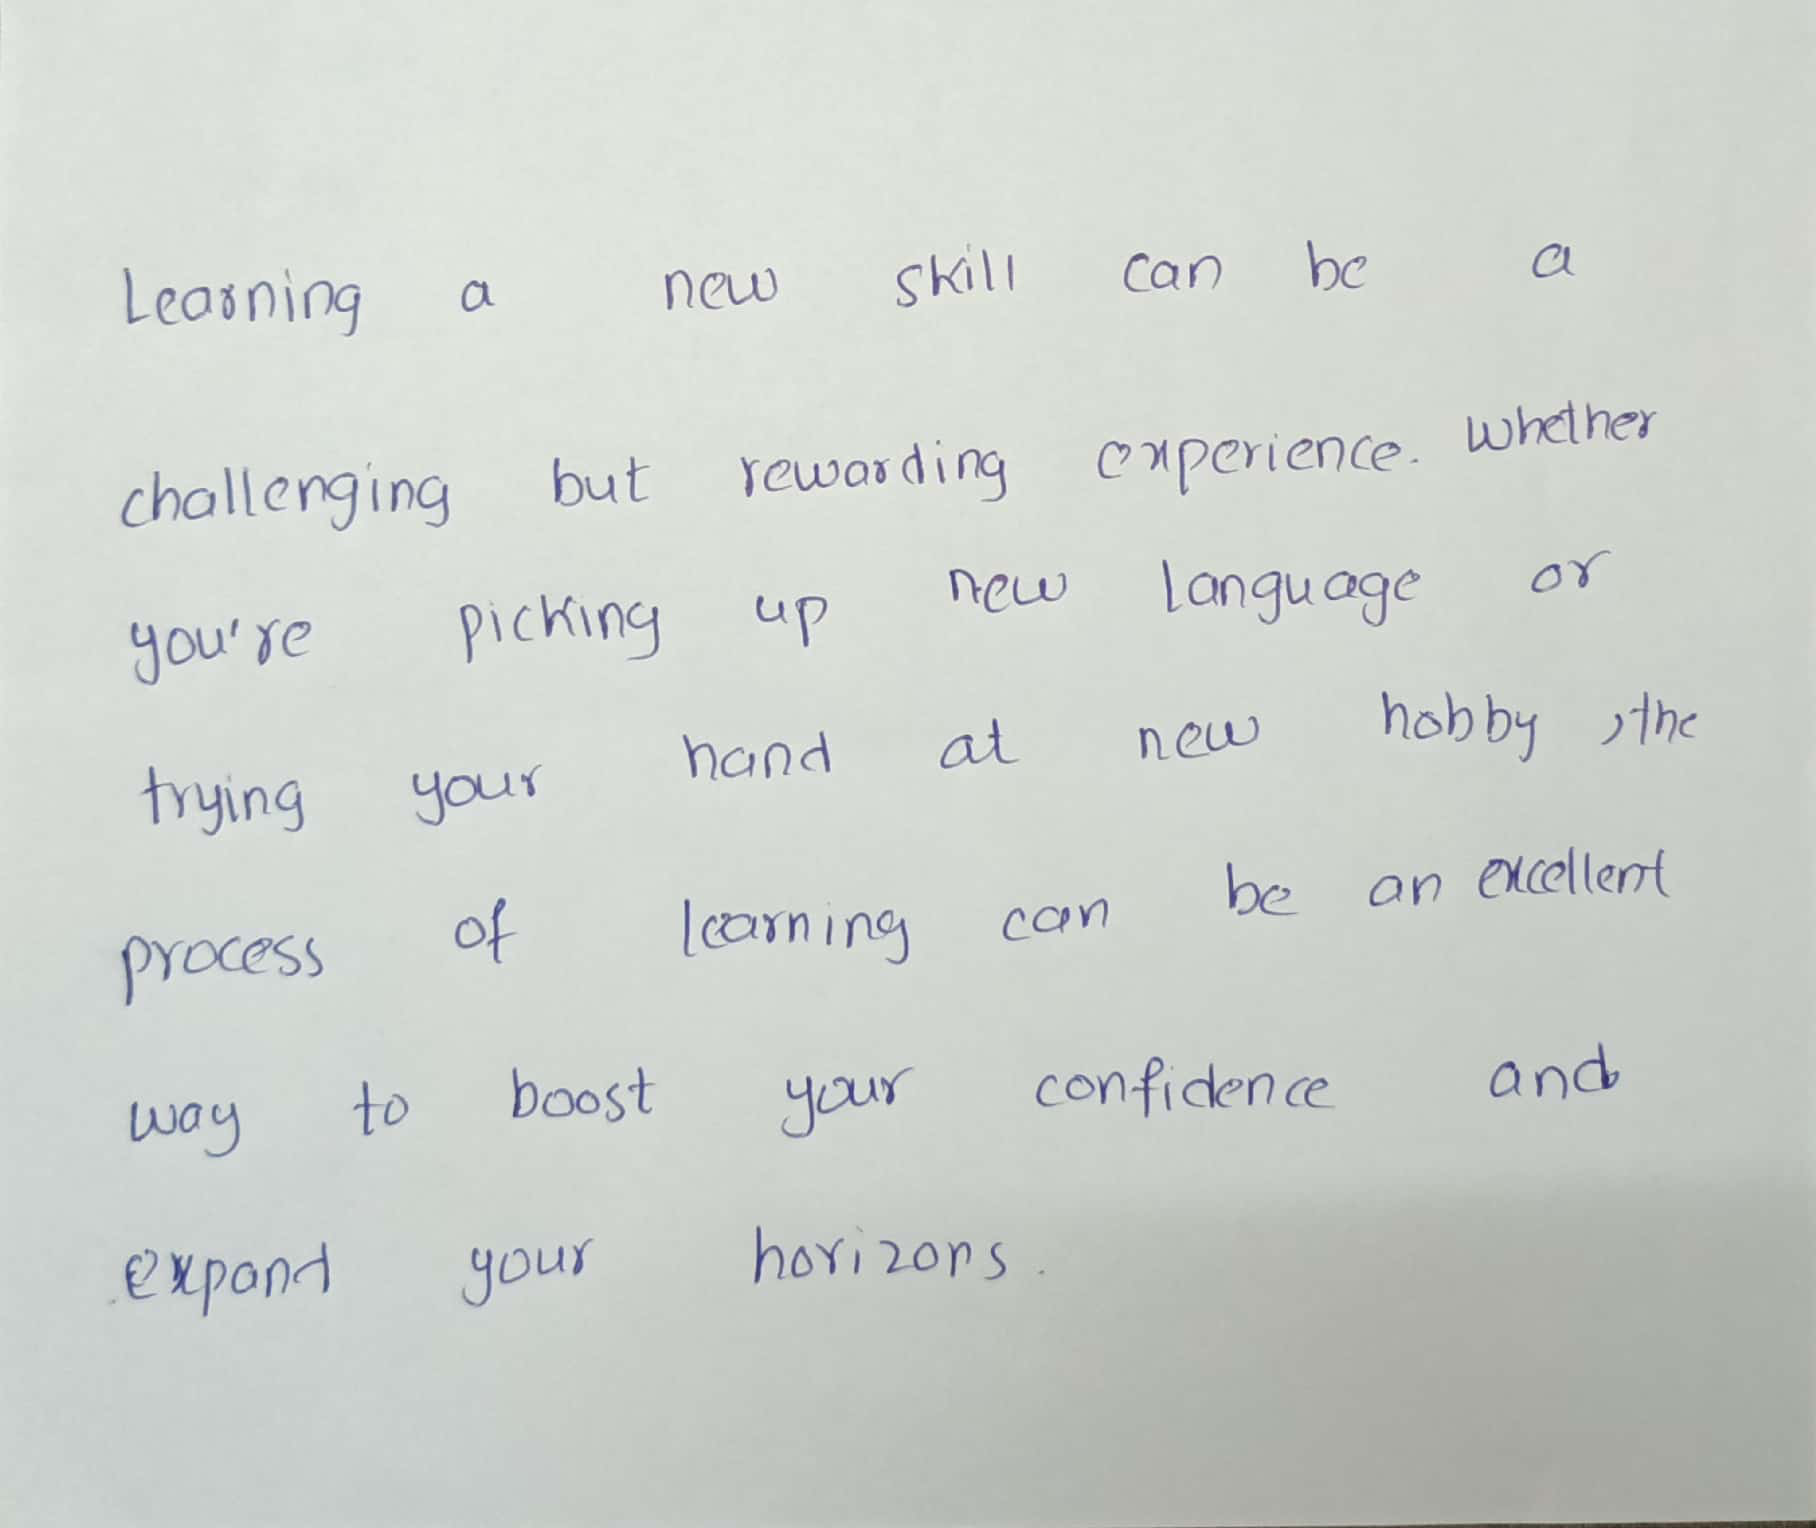 Learning a new skill can be a
challenging but rewarding experience. Whether
you're picking up new language or
trying your hand at new hobby , the
process of learning can be an excellent
way to boost your confidence and
expand your horizons.